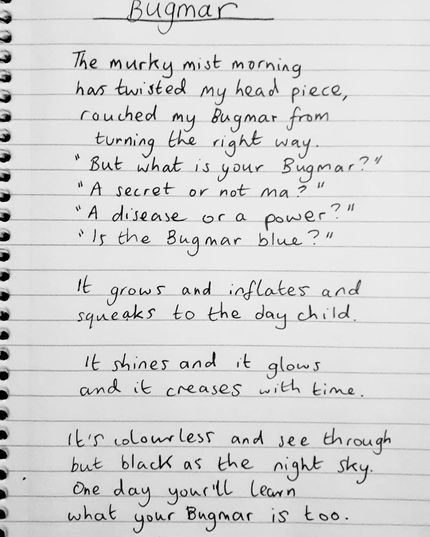 Bugmar
The murky mist morning
has twisted my head piece,
rouched my Bugmar from
turning the right way.
"But what is your Bugmar?"
"A secret or not ma?"
"A disease or a power?"
"Is the Bugmar blue?"
It grows and inflates and
squeaks to the day child.
It shines and it glows
and it creases with time.
It's colourless and see through
but black as the night sky.
One day your'll learn
what your Bugmar is too.